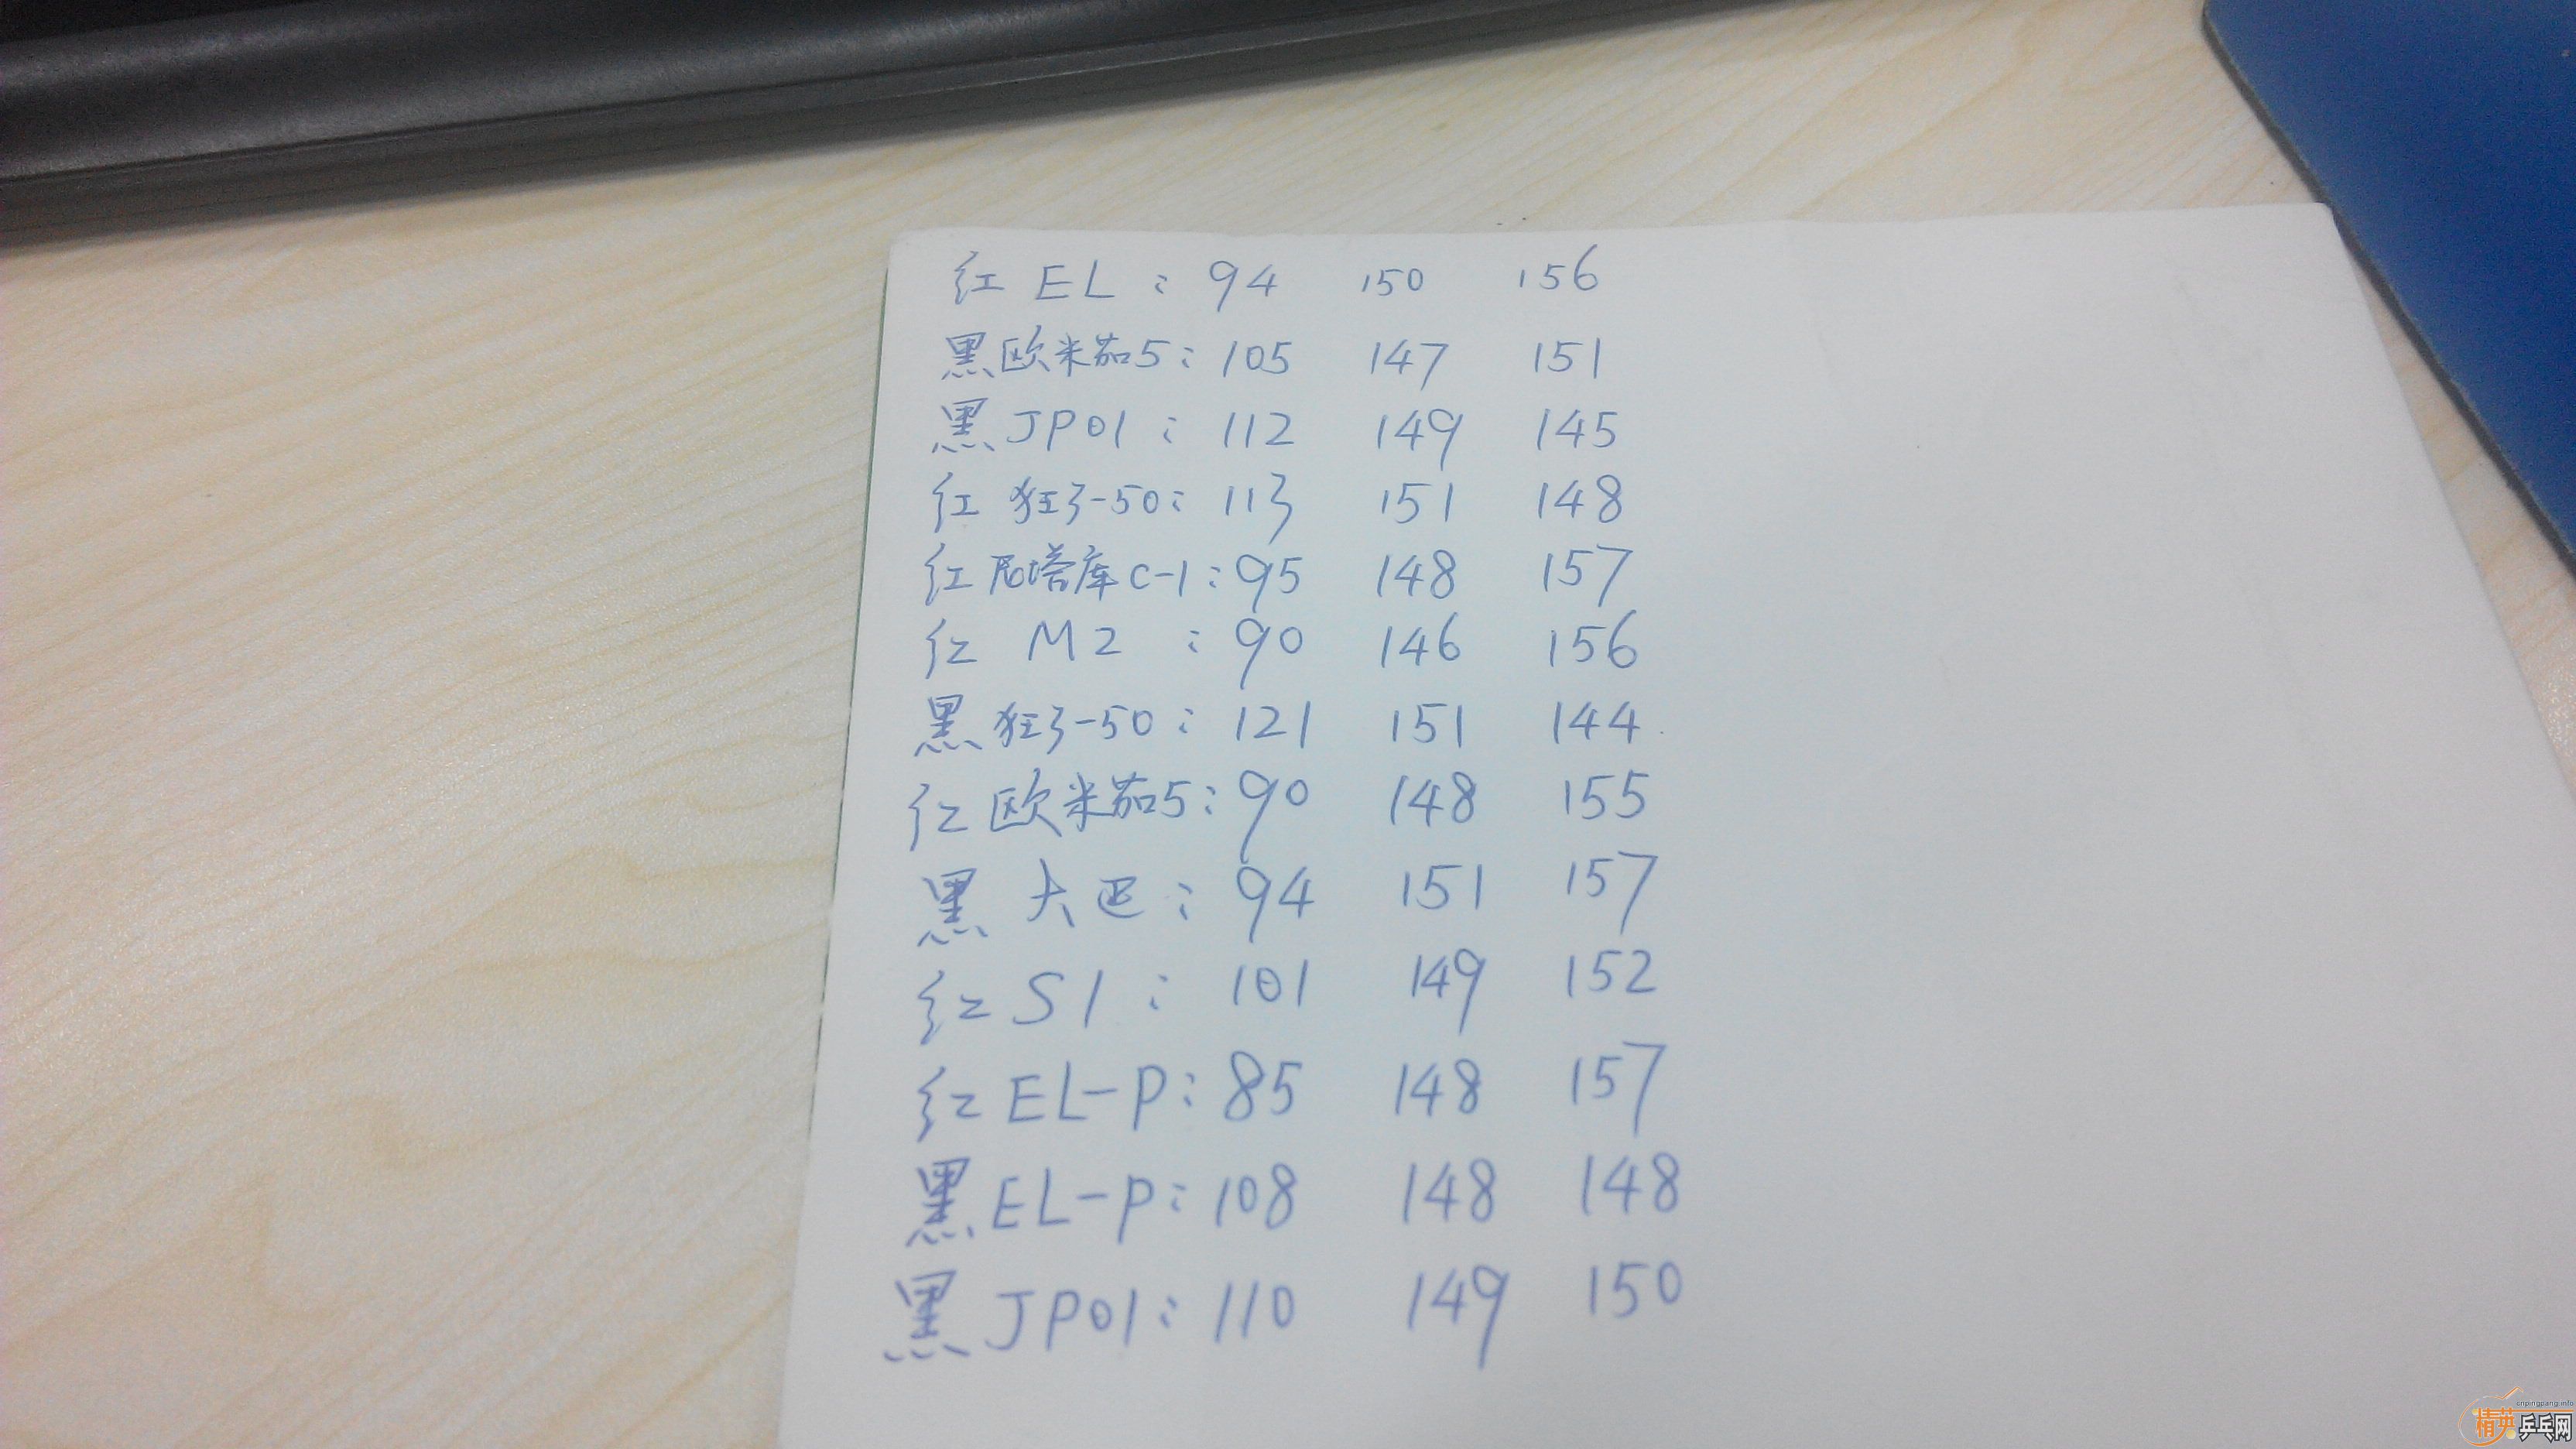 红 EL : 94 150 156
黑欧米茄5 : 105 147 151
黑JP01 : 112 149 145
红 狂3-50 : 113 151 148
红 尼塔库C-1 : 95 148 157
红 M2 : 90 146 156
黑 狂3-50 : 121 151 144
红 欧米茄5 : 90 148 155
黑 大巴 : 94 151 157
红 S1 : 101 149 152
红 EL-P : 85 148 157
黑 EL-P : 108 148 148
黑 JP01 : 110 149 150
cnpingpang.info
精英乒乓网